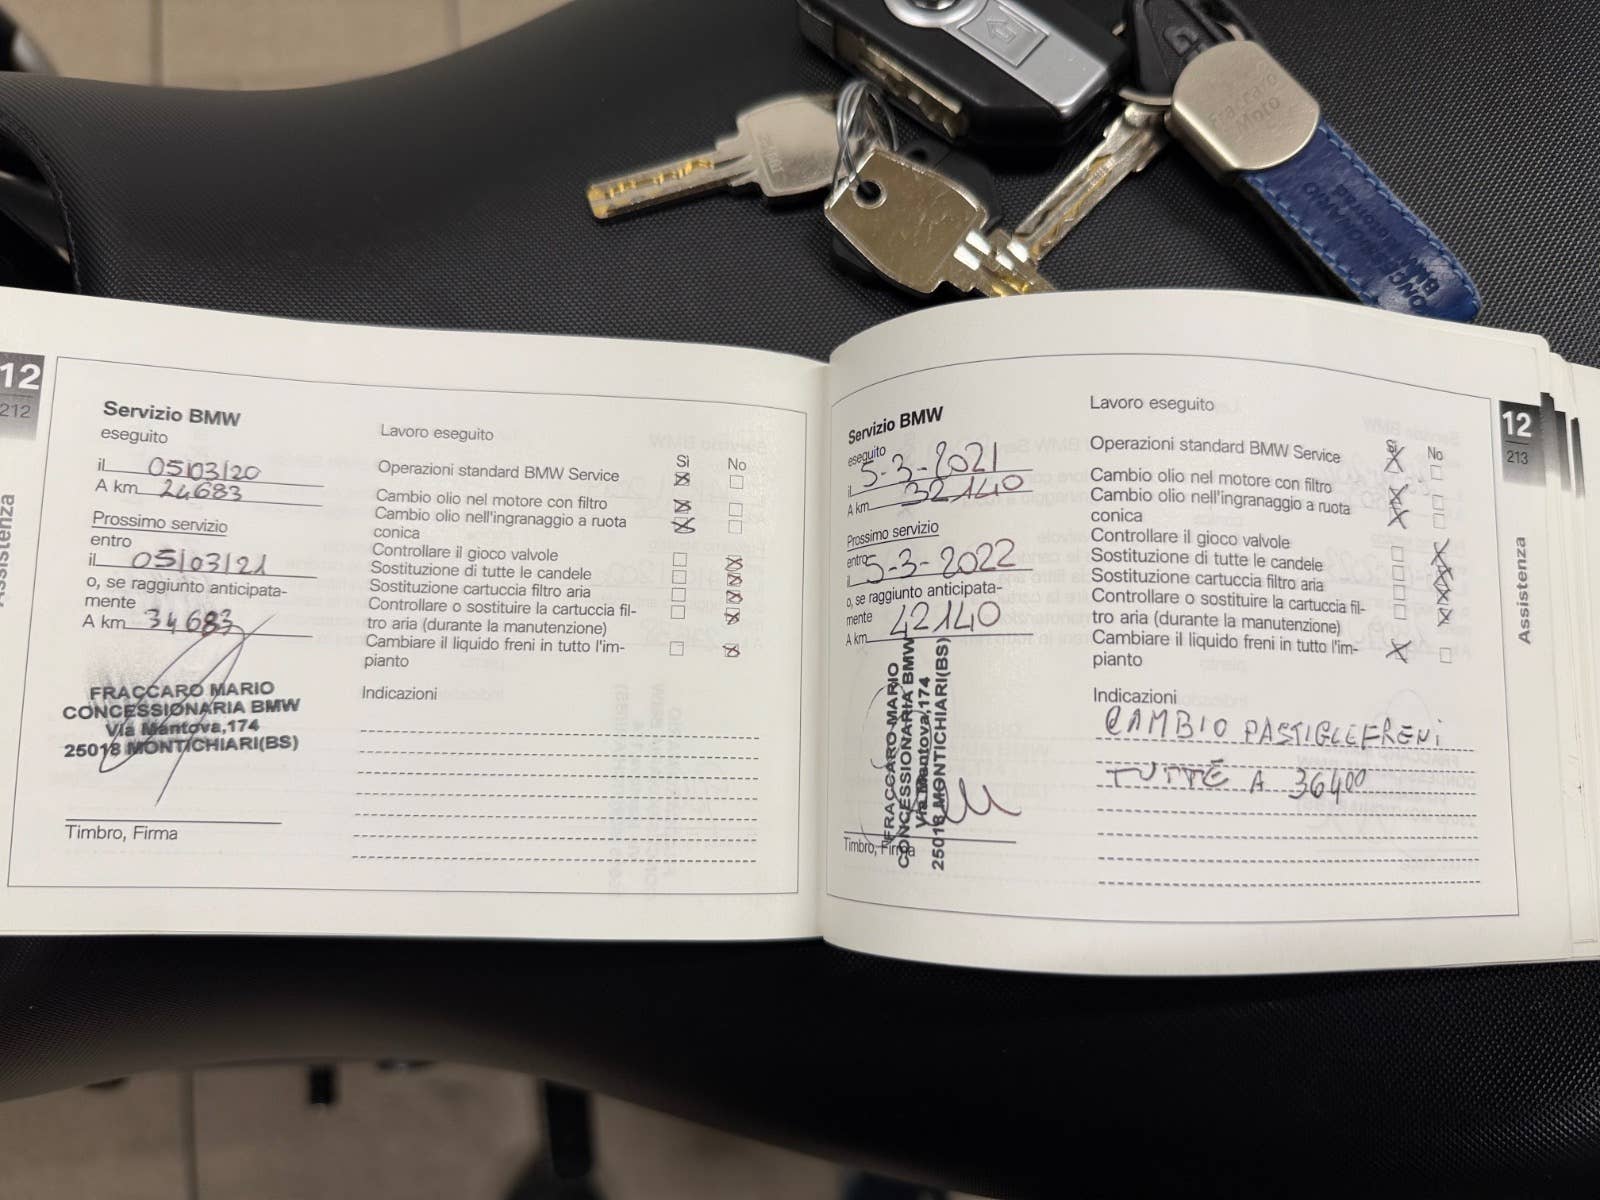 Fraccaro
Moto
12
212
Assistenza
Servizio BMW
eseguito
il 05/03/20
A km 24683
Prossimo servizio
entro
il 05/03/21
o, se raggiunto anticipata-
mente
A km 34683
FRACCARO MARIO
CONCESSIONARIA BMW
Via Mantova,174
25018 MONTICHIARI(BS)
Timbro, Firma
Lavoro eseguito
Sì No
Operazioni standard BMW Service
Cambio olio nel motore con filtro
Cambio olio nell'ingranaggio a ruota
conica
Controllare il gioco valvole
Sostituzione di tutte le candele
Sostituzione cartuccia filtro aria
Controllare o sostituire la cartuccia fil-
tro aria (durante la manutenzione)
Cambiare il liquido freni in tutto l'im-
pianto
Indicazioni
Servizio BMW
eseguito
il 5-3-2021
A km 32140
Prossimo servizio
entro
il 5-3-2022
o, se raggiunto anticipata-
mente
A km 42140
FRACCARO MARIO
CONCESSIONARIA BMW
Via Mantova,174
25018 MONTICHIARI(BS)
Timbro, Firma
Lavoro eseguito
Sì No
Operazioni standard BMW Service
Cambio olio nel motore con filtro
Cambio olio nell'ingranaggio a ruota
conica
Controllare il gioco valvole
Sostituzione di tutte le candele
Sostituzione cartuccia filtro aria
Controllare o sostituire la cartuccia fil-
tro aria (durante la manutenzione)
Cambiare il liquido freni in tutto l'im-
pianto
Indicazioni
CAMBIO PASTIGLE FRENI
TUTTE A 36400
12
213
Assistenza